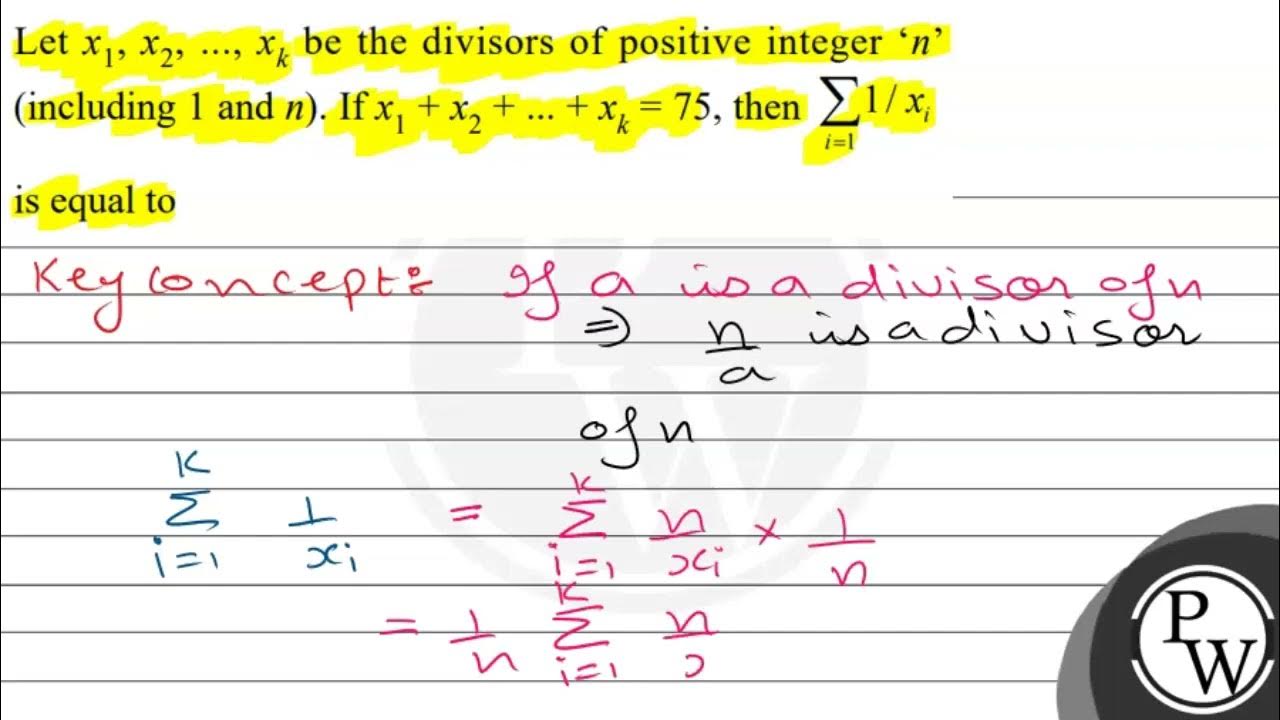 Let x₁, x₂, ..., xₖ be the divisors of positive integer ‘n’
(including 1 and n). If x₁ + x₂ + ... + xₖ = 75, then ∑ 1/ xᵢ
i=1
is equal to
Key concept: If a is a divisor of n
⇒ n/a is a divisor
of n
K∑i=1 1/xᵢ = K∑i=1 n/xᵢ × 1/n
= 1/n K∑i=1 n/
PW